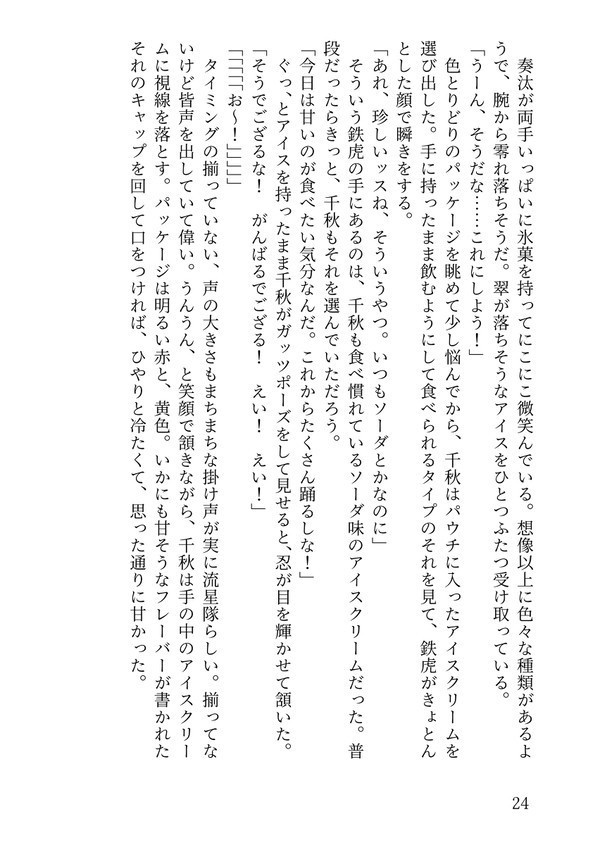 奏汰が両手いっぱいに氷菓を持ってにこにこ微笑んでいる。想像以上に色々な種類があるよ
うで、腕から零れ落ちそうだ。翠が落ちそうなアイスをひとつふたつ受け取っている。
「うーん、そうだな……これにしよう！」
　色とりどりのパッケージを眺めて少し悩んでから、千秋はパウチに入ったアイスクリームを
選び出した。手に持ったまま飲むようにして食べられるタイプのそれを見て、鉄虎がきょとん
とした顔で瞬きをする。
「あれ、珍しいッスね、そういうやつ。いつもソーダとかなのに」
　そういう鉄虎の手にあるのは、千秋も食べ慣れているソーダ味のアイスクリームだった。普
段だったらきっと、千秋もそれを選んでいただろう。
「今日は甘いのが食べたい気分なんだ。これからたくさん踊るしな！」
　ぐっ、とアイスを持ったまま千秋がガッツポーズをして見せると、忍が目を輝かせて頷いた。
「そうでござるな！　がんばるでござる！　えい！　えい！」
「「「「お〜！」」」」
　タイミングの揃っていない、声の大きさもまちまちな掛け声が実に流星隊らしい。揃ってな
いけど皆声を出していて偉い。うんうん、と笑顔で頷きながら、千秋は手の中のアイスクリー
ムに視線を落とす。パッケージは明るい赤と、黄色。いかにも甘そうなフレーバーが書かれた
それのキャップを回して口をつければ、ひやりと冷たくて、思った通りに甘かった。
24